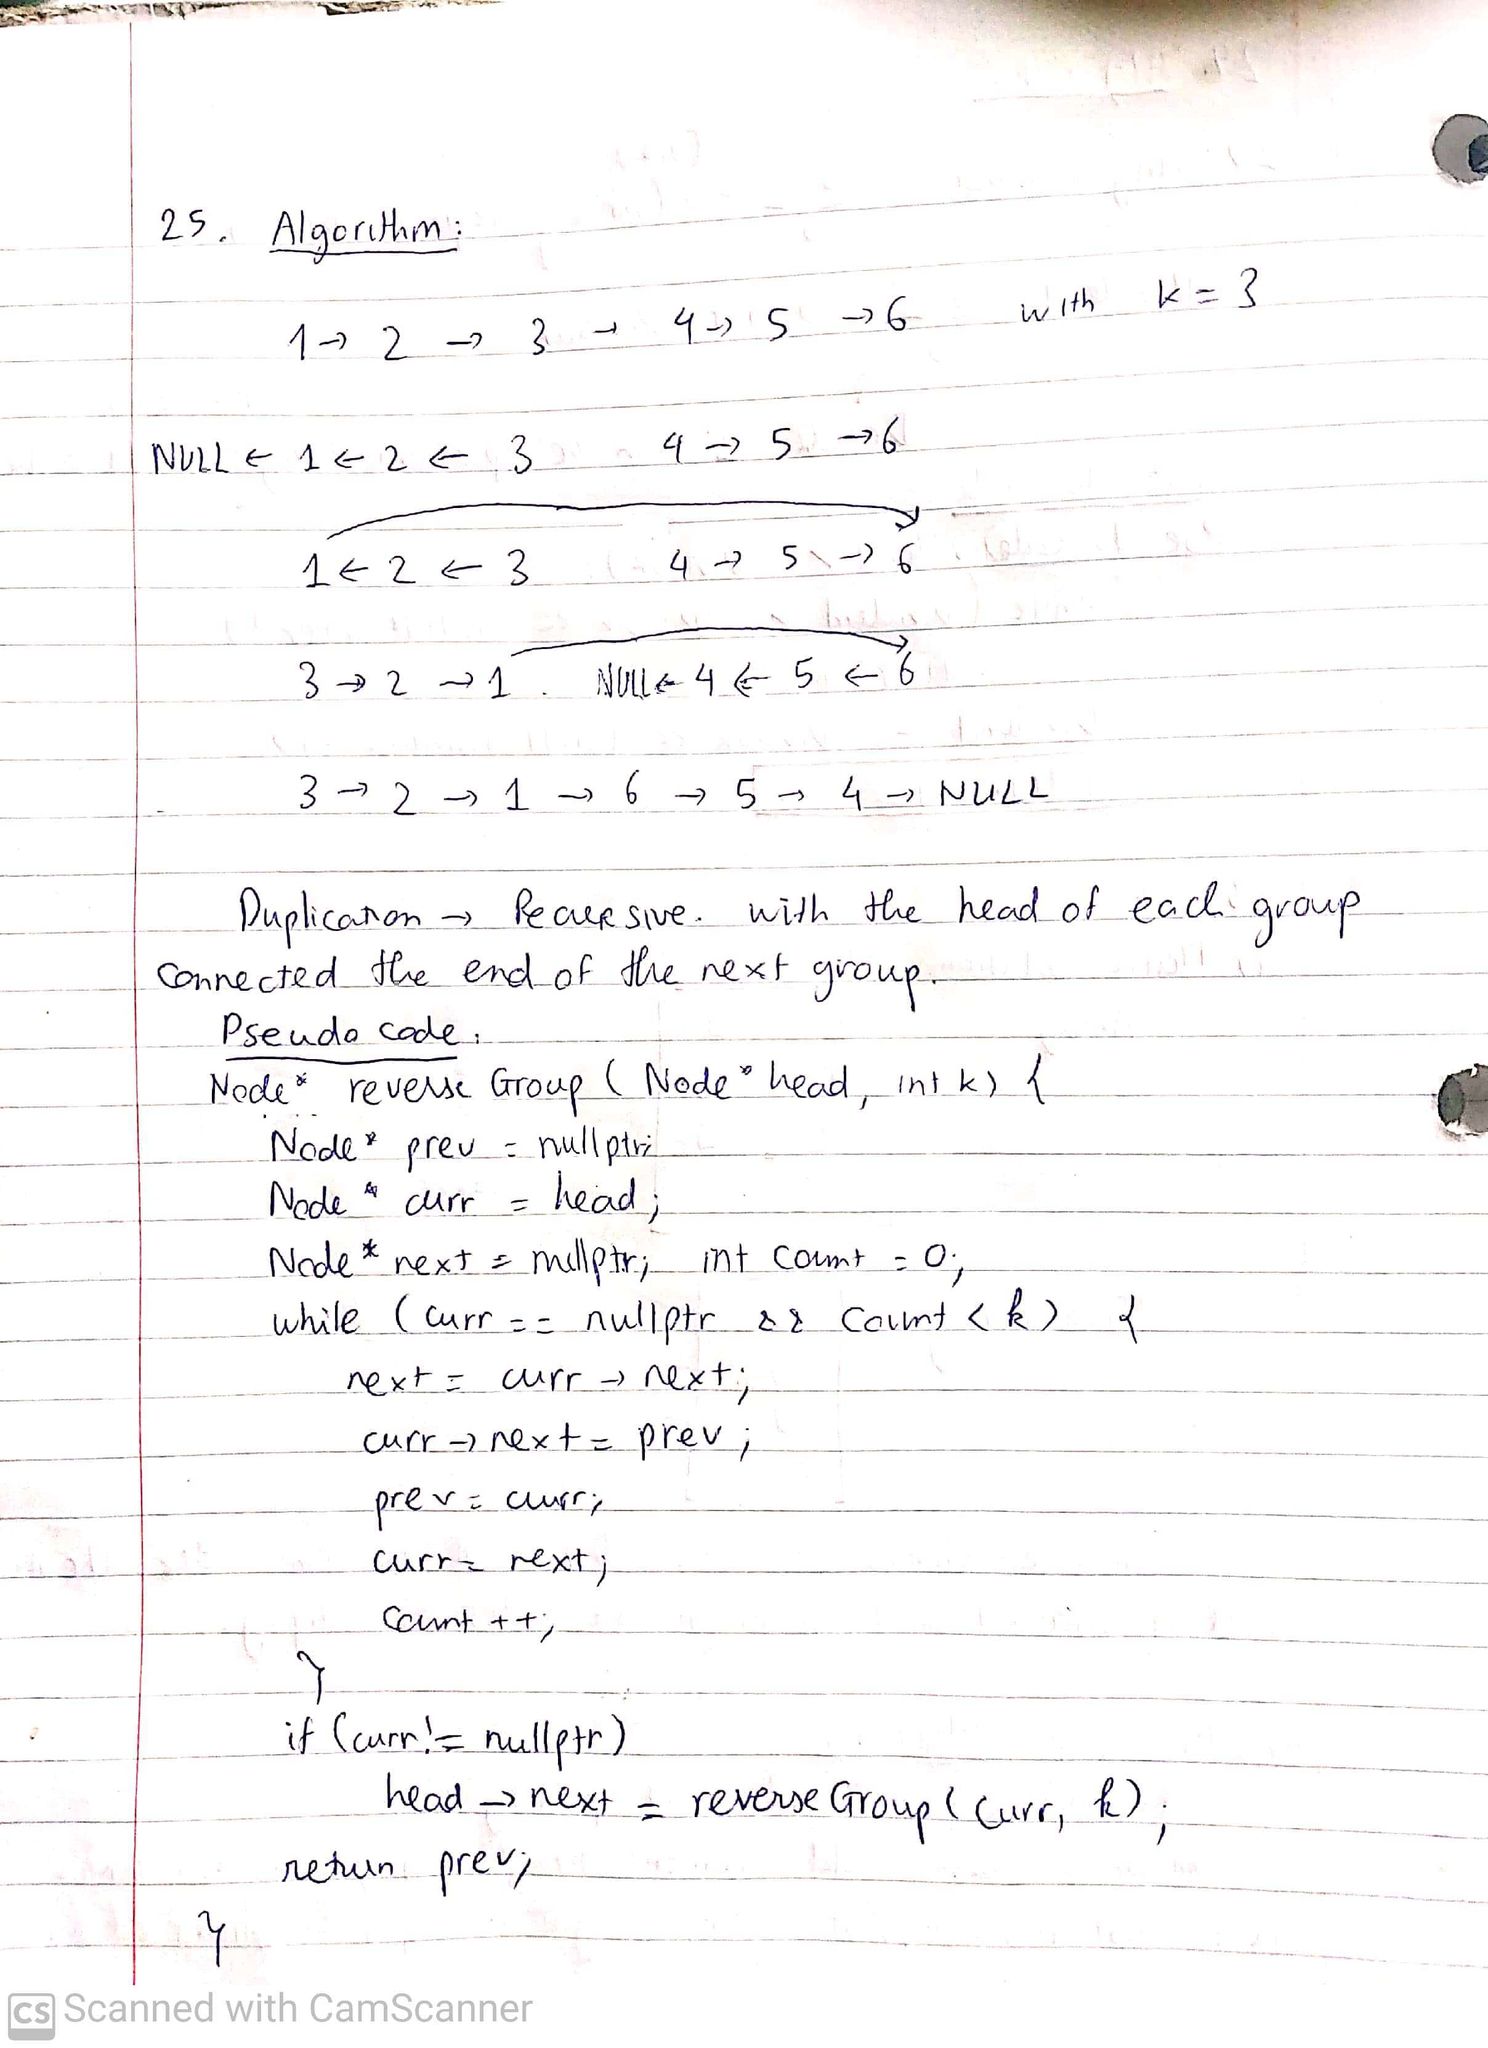 25. Algorithm:
1 → 2 → 3 → 4 → 5 → 6 with k = 3
NULL ← 1 ← 2 ← 3 4 → 5 → 6
1 ← 2 ← 3 4 → 5 → 6
3 → 2 → 1 . NULL ← 4 ← 5 ← 6
3 → 2 → 1 → 6 → 5 → 4 → NULL
Duplication → Recursive. with the head of each group
connected the end of the next group.
Pseudo code:
Node* reverse Group ( Node* head, int k) {
Node* prev = nullptr;
Node* curr = head;
Node* next = nullptr; int count = 0;
while (curr == nullptr && count < k) {
next = curr → next;
curr → next = prev;
prev = curr;
curr = next;
count ++;
}
if (curr != nullptr)
head → next = reverseGroup(curr, k);
return prev;
}
CS Scanned with CamScanner